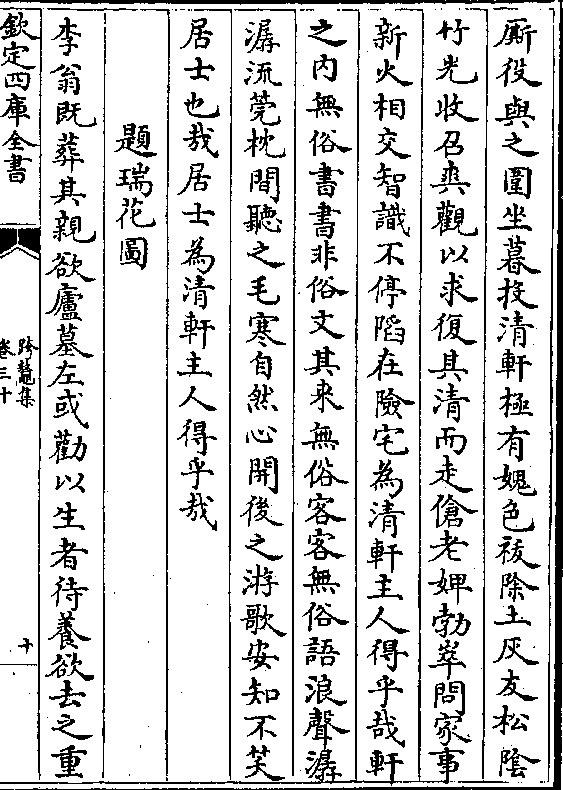 厮役與之圍坐暮投清軒極有媿色祓除土灰友松陰
竹光收召爽觀以求復其清而走傖老婢勃窣問家事
新火相交智識不停陷在險宅為清軒主人得乎哉軒
之内無俗書書非俗文其來無俗客客無俗語浪聲潺
潺流莞枕間聽之毛寒自然心開後之游歌安知不笑
居士也哉居士為清軒主人得乎哉
題瑞花圖
李翁既葬其親欲廬墓左或勸以生者待養欲去之重
欽定四庫全書
跨鼇集
卷三十
十